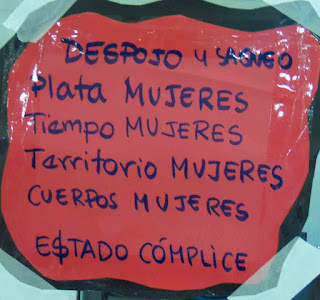 DESPOJO y SAQUEO
Plata MUJERES
Tiempo MUJERES
Territorio MUJERES
CUERPOS MUJERES
E$TADO CÓMPLICE